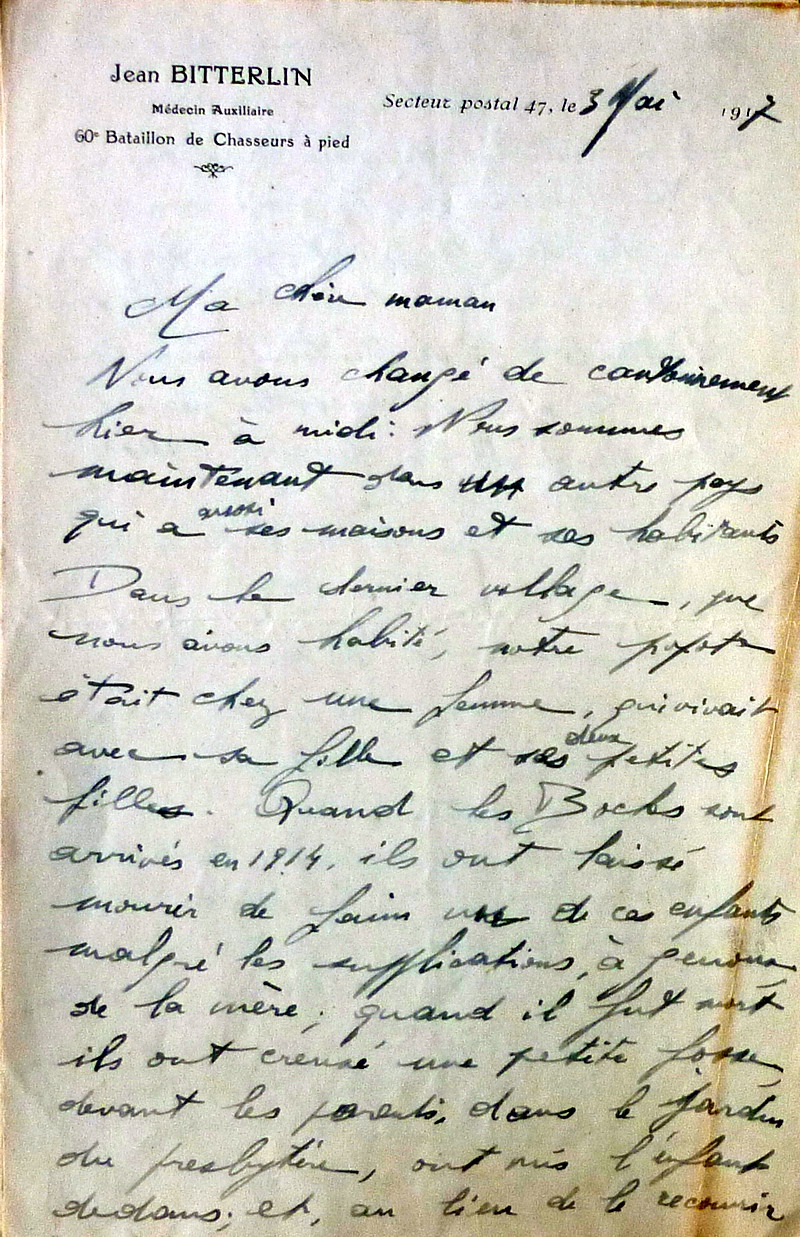 Jean BITTERLIN
Médecin Auxiliaire
60e Bataillon de Chasseurs à pied
Secteur postal 47, le 3 Mai 1917
Ma chère maman
Nous avons changé de cantonnement
hier à midi. Nous sommes
maintenant dans un autre pays
qui a aussi ses maisons et ses habitants
Dans le dernier village, que
nous avons habité, notre popote
était chez une femme, qui vivait
avec sa fille et ses deux petites
filles. Quand les Boches sont
arrivés en 1914, ils ont laissé
mourir de faim un de ces enfants
malgré les supplications, à genoux,
de la mère; quand il fut mort
ils ont creusé une petite fosse,
devant les parents, dans le jardin
du presbytère, ont mis l'enfant
dedans; et, au lieu de le recouvrir